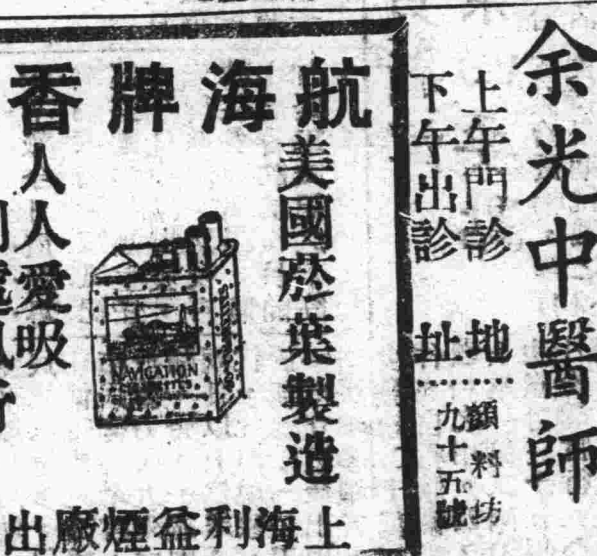 余光中醫師
上午門診
下午出診
地址
顏料坊
九十五號
航海牌香
美國菸葉製造
人人愛吸
NAVIGATION
CIGARETTES
上海利益煙廠出